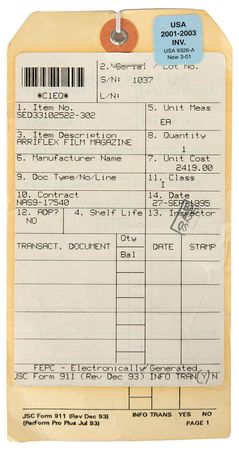 USA
2001-2003
INV.
USA 9326-A
New 3-01
*C1EQ*
2. Serial / Lot No.
S/N: 1037
L/N:
1. Item No.
SED33102522-302
5. Unit Meas
EA
3. Item Description
ARRIFLEX FILM MAGAZINE
8. Quantity
1
6. Manufacturer Name
7. Unit Cost
2419.00
9. Doc Type/No/Line
11. Class
I
10. Contract
NAS9-17540
14. Date
27-SEP-1995
12. ADP? 4. Shelf Life 13. Inspector
NO
TRANSACT. DOCUMENT Qty DATE STAMP
Bal
FEPC - Electronically Generated
JSC Form 911 (Rev Dec 93) INFO TRAN(Y)/N
JSC Form 911 (Rev Dec 93) INFO TRANS YES NO
(PerForm Pro Plus Jul 93) PAGE 1